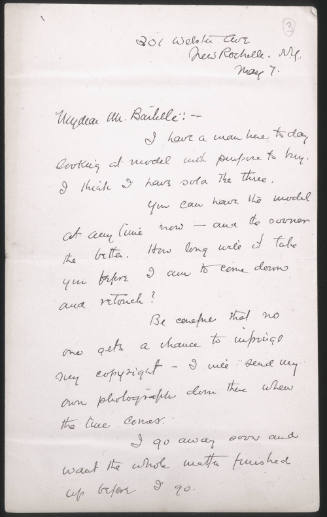 3
301 Webster Ave
New Rochelle. N.Y.
May 7.
My dear Mr. :—
I have a man here to day
looking at model with purpose to buy.
I think I have sold the three.
You can have the model
at any time now — and the sooner
the better. How long will it take
you before I am to come down
and retouch?
Be careful that no
one gets a chance to infringe
my copyright — I will send my
own photographer down there when
the time comes.
I go away soon and
want the whole matter finished
up before I go.